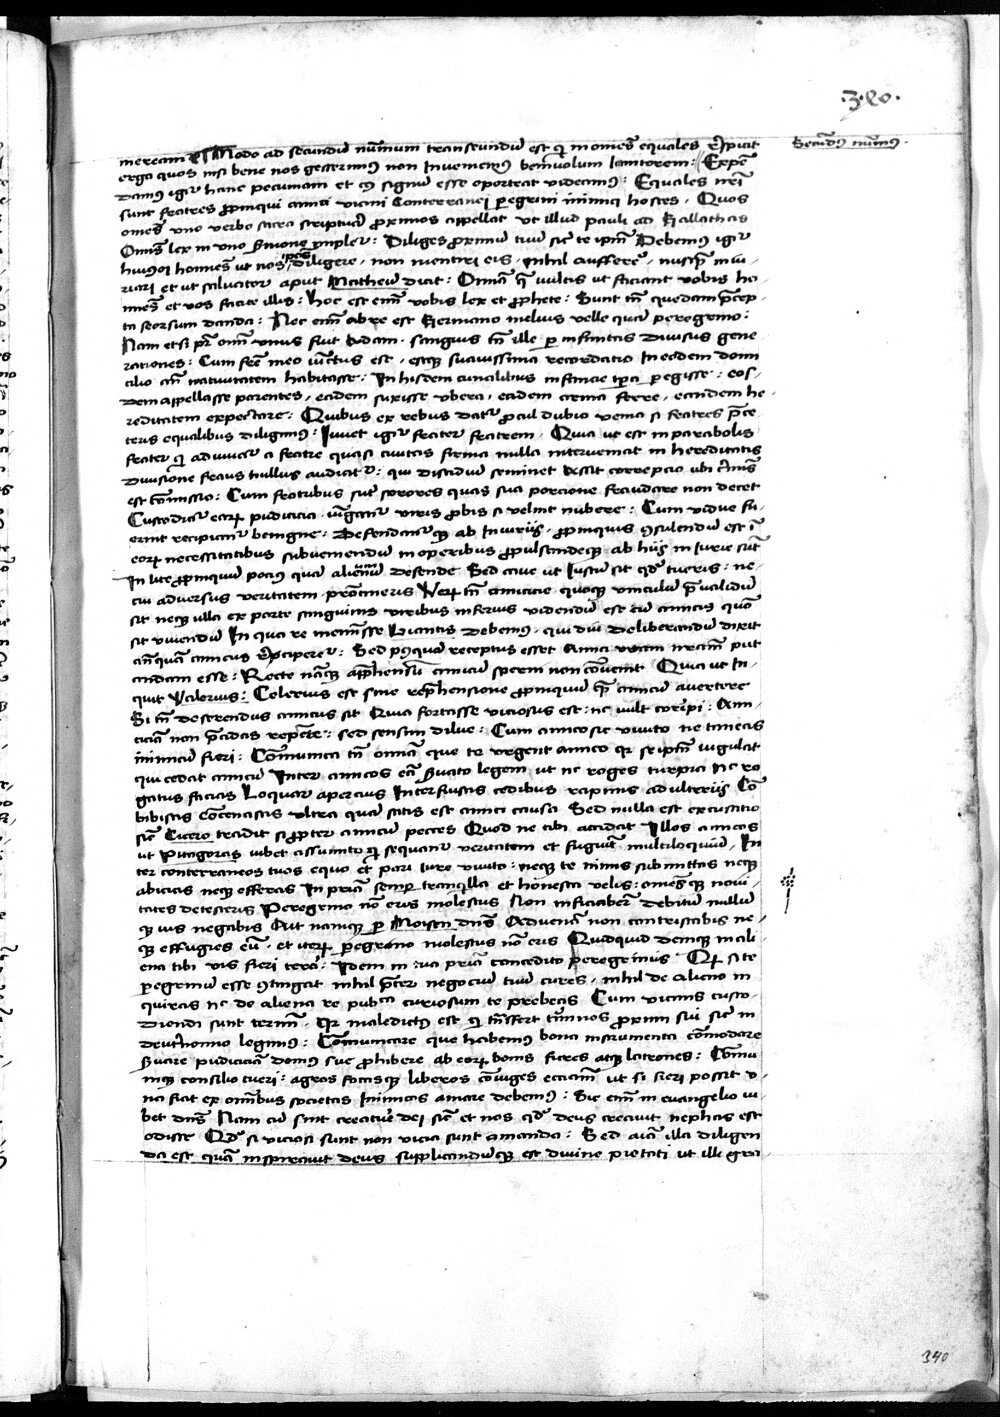 .3.80.
Secundus nummus.
meream Modo ad secundum nummum transeundum est qui in omnes equales respicit
ergo quos nisi bene nos gesserimus non Inveniemus benivolum Ianitorem: Expen
damus igitur hanc pecuniam et cuius signum esse oporteat videamus: Equales nostri
sunt fratres propinqui amici vicini Conterranei peregrini inimici hostes. Quos
omnes uno verbo sacra scriptura proximos appellat ut illud pauli ad Gallathas
Omnis lex in uno sermone impletur: Diliges proximum tuum sicut te ipsum Debemus igitur
huiusmodi homines ut nos ipsos diligere, non mentiri eis, nihil aufferre,
et ut salvator aput Matheum dicit: Omnia quecumque vultis ut faciant vobis ho
mines et vos facite illis: hoc est enim vobis lex et prophete: Sunt tamen quedam precep
ta seorsum danda: Nec enim ab re est Germano melius velle quam peregrino:
Nam etsi pater omnium unus fuit Adam. sanguis tamen ille per infinitas divisus gene
rationes: Cum fratre meo iunctus est, estque suavissima recordatio In eadem domi
cilio ante nativitatem habitasse: In hisdem cunalibus infancie tempora peregisse: eos,
dem appellasse parentes, eadem suxisse ubera, eadem arma ferre, eandem he,
reditatem expectare: Quibus ex rebus datur procul dubio venia si fratres pre ce
teris equalibus diligimus: Iuvet igitur frater fratrem. Quia ut est in parabolis
frater qui adiuvatur a fratre quasi civitas firma nulla interveniat in hereditatis
divisione fraus nullus audiatur: qui discidium seminet Assit correpcio ubi criminis
est commissio: Cum fratribus sunt sorores quas sua porcione fraudare non decet
Custodiatur earum pudicicia iungantur viris probis si velint nubere: Cum vidue fu,
erint recipiantur benigne: Defendanturque ab Iniuriis, propinquis consulendum est i
eorum necessitatibus subveniendum in operibus propulsandeque ab hiis iniurie sunt
In lite propinquum pocius quam alienum defende Sed cave ut Iustum sit quod tueris: ne,
cui adversus veritatem Verum tamen amicicie quoque vinculum prevalidum
sit neque ulla ex parte sanguinis viribus inferius videndum est cum amicis quomodo
sit vivendum In qua re meminisse Debemus, qui diu deliberandum dixit
antequam amicus reciperetur: Sed postquam receptus esset
candam esse: Recte namque apprehensum amicum sperni non convenit Quia ut In,
quit Valerius: Celerius est sine reprehensione propinquum quam amicum avertere
Si tamen deserendus amicus sit Quia fortasse viciosus est: nec vult corripi: Ami
ciciam non precidas repente: sed sensim dilue: Cum amico sic vivito ne timeas
inimicum fieri: Communica tamen omnia que te urgent amico quia se ipsum iugulat
qui cedat amicum Inter amicos eciam servato legem ut nec roges turpia nec ro
gatus facias Loquar apercius Interfuistis cedibus rapinis adulteriis Com
bibistis Concenastis ultra quam satis est amici causa Sed nulla est excusatio
sicut Cicero tradit si propter amicum pecces Quod ne tibi accidat Illos amicos
ut Pitagoras iubet assumito qui sequantur veritatem et fugiunt multiloquium, In
ter conterraneos tuos equo et pari iure vivito: neque te nimis submittas neque
abicias neque efferas In patria semper tranquilla et honesta velis: omnesque novi,
tates detesteris Peregrino non eris molestus Non inficiaberis debitum nullum
que ius negabis Ait namque per Moisen dominus Advenam non contristabis ne,
que effugies eum, et iterum peregrino molestus non eris Quidquid denique in ali
ena tibi vis fieri terra: Idem in tua patria concedito peregrinus Quod si te
peregrinum esse contingat nihil preter negocium tuum cures, nihil de alieno in
quiras nec de aliena re publica curiosum te prebeas Cum vicinis custo,
diendi sunt termini. Quia maledictus est qui transfert terminos proximi sui sicut in
deutronomio legimus: Communicare que habemus bona instrumenta commodare
servare pudiciciam domus sue prohibere ab eorum bonis fures atque latrones: Commu
nique consilio tueri: agros focosque liberos coniuges ecciam ut si fieri possit u,
na fiat ex omnibus societas Inimicos amare debemus: Sic enim in evangelio iu
bet dominus Nam cum sint creature dei sicut et nos quod deus creavit nephas est
odisse Quod si viciosi sunt non vicia sunt amanda: Sed anima illa diligen
da est quam inspiravit deus supplicandumque est divine pietati ut illi gra
340